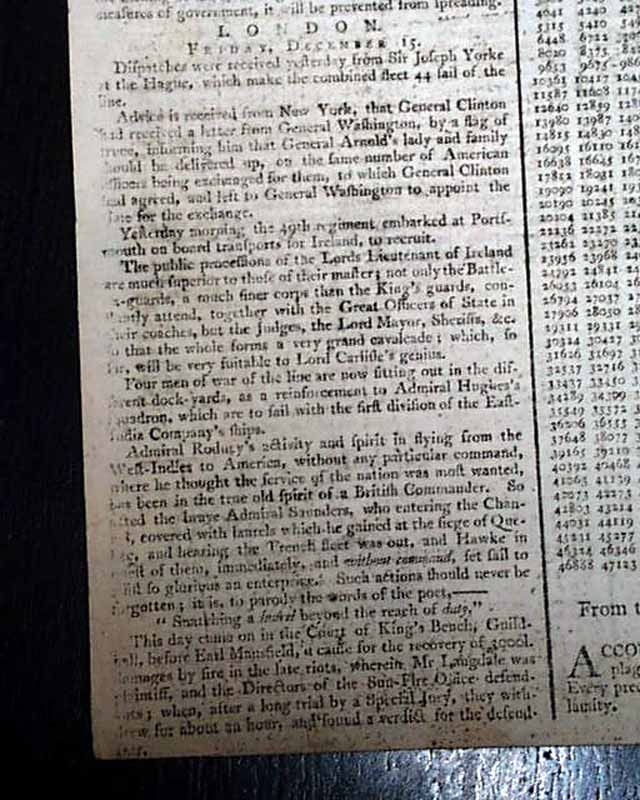 measures of government, it will be prevented from spreading.
LONDON.
FRIDAY, DECEMBER 15.
Dispatches were received yesterday from Sir Joseph Yorke
at the Hague, which make the combined fleet 44 sail of the
line.
Advice is received from New York, that General Clinton
had received a letter from General Washington, by a flag of
truce, informing him that General Arnold's lady and family
should be delivered up, on the same number of American
officers being exchanged for them, to which General Clinton
had agreed, and left to General Washington to appoint the
date for the exchange.
Yesterday morning the 49th regiment embarked at Ports-
mouth on board transports for Ireland, to recruit.
The public processions of the Lords Lieutenant of Ireland
are much superior to those of their master; not only the Battle-
x-guards, a much finer corps than the King's guards, con-
stantly attend, together with the Great Officers of State in
their coaches, but the Judges, the Lord Mayor, Sheriffs, &c.
so that the whole forms a very grand cavalcade; which, so
far, will be very suitable to Lord Carlisle's genius.
Four men of war of the line are now fitting out in the dif-
ferent dock-yards, as a reinforcement to Admiral Hughes's
squadron, which are to sail with the first division of the East-
India Company's ships.
Admiral Rodney's activity and spirit in flying from the
West-Indies to America, without any particular command,
where he thought the service of the nation was most wanted,
has been in the true old spirit of a British Commander. So
acted the brave Admiral Saunders, who entering the Chan-
nel, covered with laurels which he gained at the siege of Que-
bec, and hearing the French fleet was out, and Hawke in
quest of them, immediately, and without command, set sail to
so glorious an enterprize. Such actions should never be
forgotten; it is, to parody the words of the poet,—
" Snatching a laurel beyond the reach of duty."
This day came on in the Court of King's Bench, Guild-
hall, before Earl Mansfield, a cause for the recovery of
damages by fire in the late riots, wherein Mr Langdale was
plaintiff, and the Directors of the Sun-Fire Office defend-
ants; when, after a long trial by a Special Jury, they with-
drew for about an hour, and found a verdict for the defend-
ants.
4041 4240
5315 5410
6448 6722
8020 8375
9653 9675
10361 10417
11587 11608
12640 12859
13980 13987
14815 14830
16095 16110
16638 16645
17852 18031
19090 19241
20190 20245
20204 21385
22136 22272
23261 23270
23956 23968
24792 24841
26053 26104
26794 27037
27906 28050
29311 29331
30324 30427
31626 31697
32537 32716
33437 33450
34289 34309
35549 35572
36206 36555
37648 38077
39165 39210
40392 40468
41065 41139
42073 42273
42803 43214
44031 44119
45231 45277
46324 46346
46868 47123
From
ACCO
plag
Every pre
lamity.